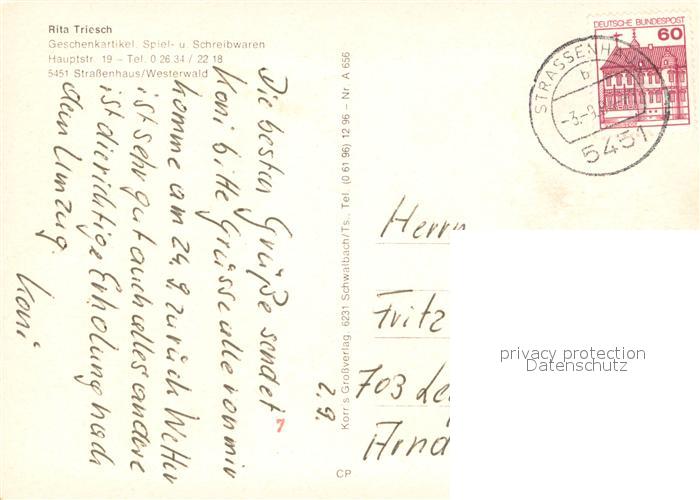 Rita Triesch
Geschenkartikel, Spiel- u. Schreibwaren
Hauptstr. 19 – Tel. 0 26 34 / 22 18
5451 Straßenhaus/Westerwald
Die besten Grüße sendet
Koni bitte Grüsse alle von mir
komme am 24.9. zurück Wetter
ist sehr gut auch alles andere
ist die richtige Erholung nach
dem Umzug.
Koni
2.9.
7
Korr's Großverlag, 6231 Schwalbach/Ts., Tel. (0 61 96) 12 96 – Nr A 656
CP
DEUTSCHE BUNDESPOST
60
STRASSENHA
b
-3.-9.
5451
Herrn
Fritz
703
Arnd
privacy protection
Datenschutz